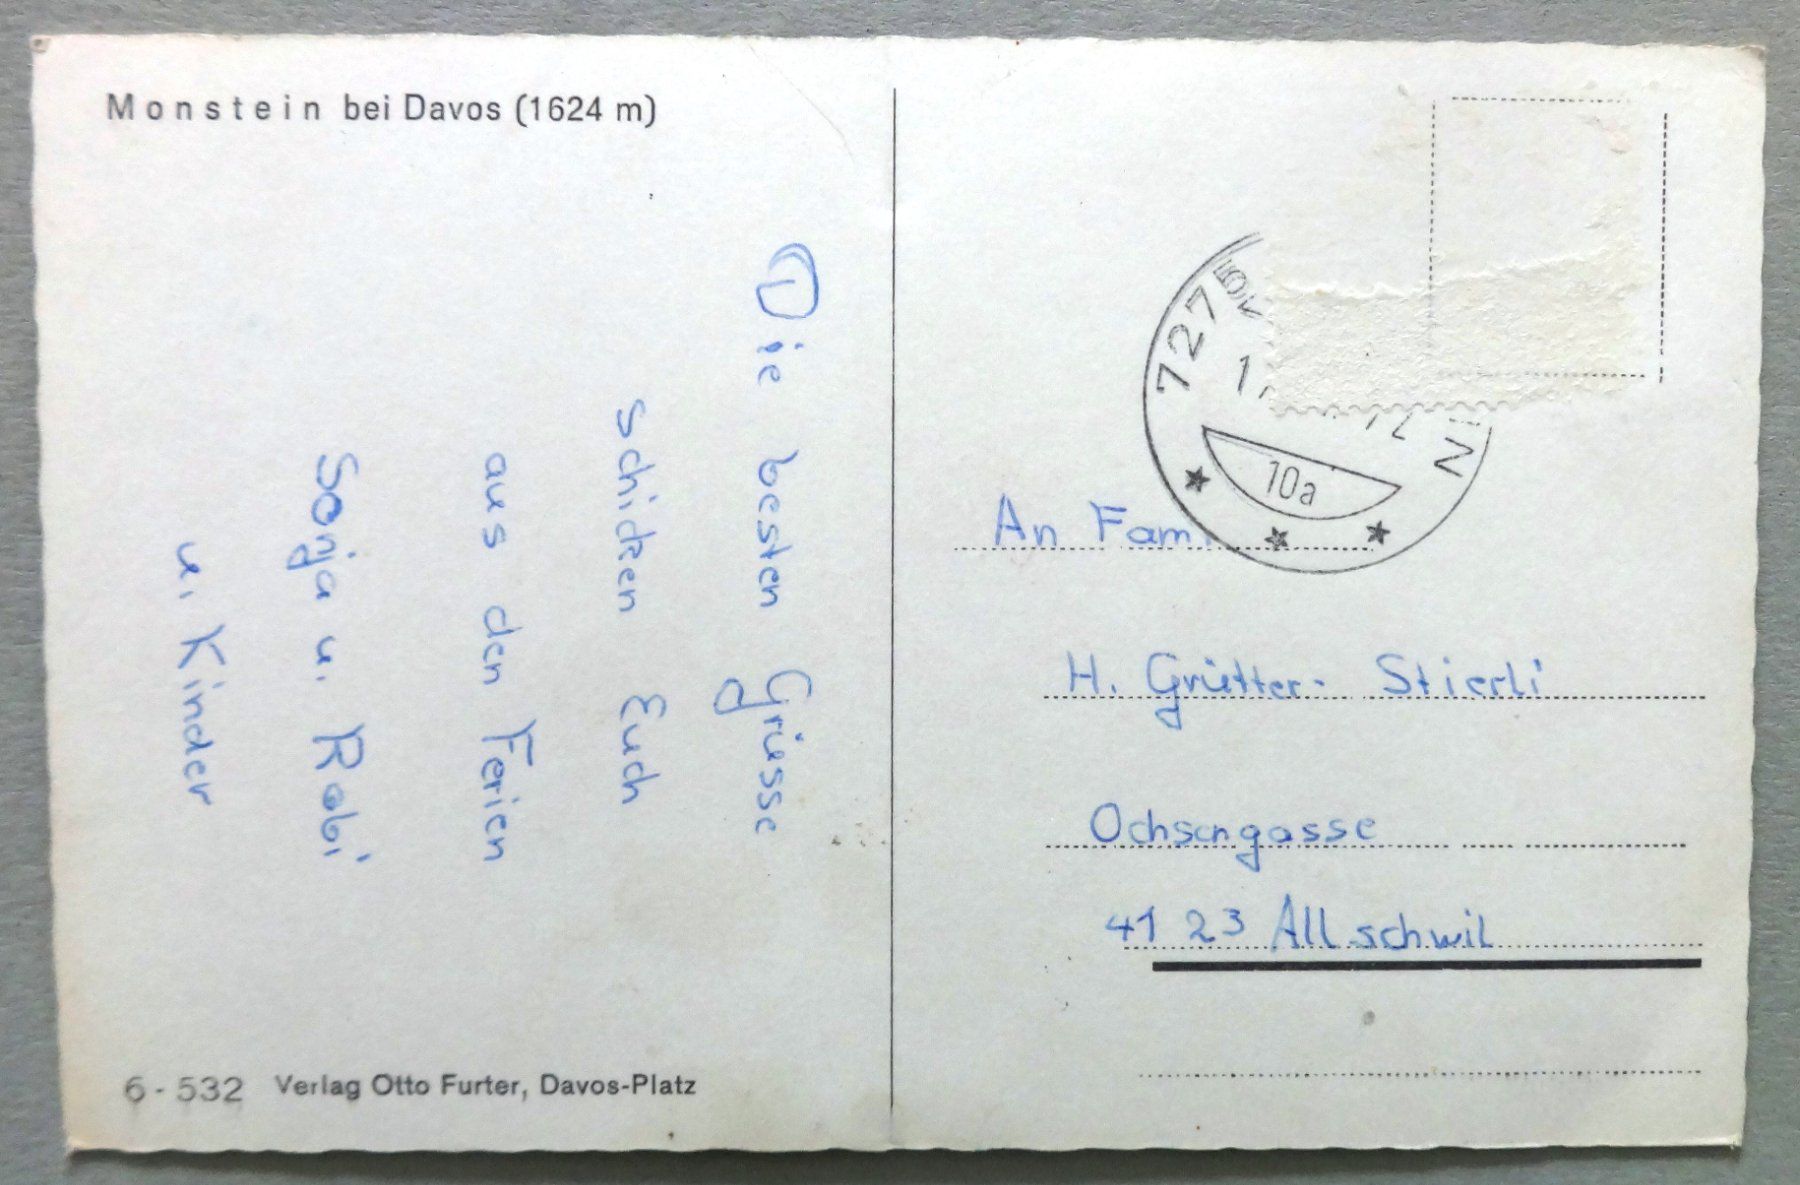 Monstein bei Davos (1624 m)
Die besten Grüsse
schicken Euch
aus den Ferien
Sonja u. Robi
u. Kinder
6-532 Verlag Otto Furter, Davos-Platz
727
10a
An Fam.
H. Grütter-Stierli
Ochsengasse
4123 Allschwil